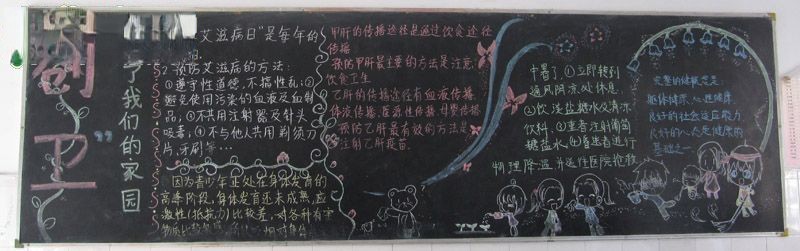 创卫"
了我们的家园
艾滋病日"是每年的
2、预防艾滋病的方法:
①遵守性道德,不搞性乱;②
避免使用污染的血液及血制
品;③不共用注射器及针头,
吸毒;④不与他人共用剃须刀
片,牙刷等…
因为青少年正处在身体发育的
高峰阶段,身体发育还未成熟,应
激性(抵抗力)比较差,对各种有害
甲肝的传播途径是通过饮食途径
传播
预防甲肝最主要的方法是注意
饮食卫生
乙肝的传播途径有血液传播
体液传播、医源性传播、母婴传播
预防乙肝最有效的方法是
注射乙肝疫苗.
中暑了:①立即转到
通风阴凉处休息.
②饮淡盐糖水及清凉
饮料.③重者注射葡萄
糖盐水④高速者进行
物理降温并送往医院抢救
完整的健康概念是:
躯体健康、心理健康
良好的社会适应能力
良好的心态是健康的
基础之一